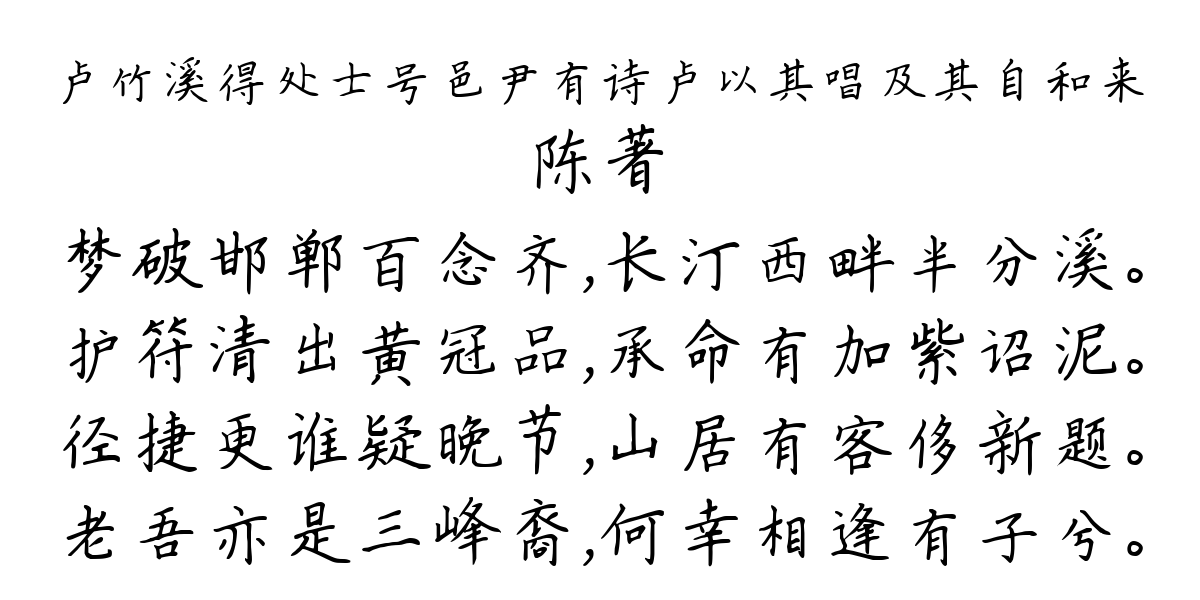 卢竹溪得处士号邑尹有诗卢以其唱及其自和来
陈著
梦破邯郸百念齐,长汀西畔半分溪。
护符清出黄冠品,承命有加紫诏泥。
径捷更谁疑晚节,山居有客侈新题。
老吾亦是三峰裔,何幸相逢有子兮。